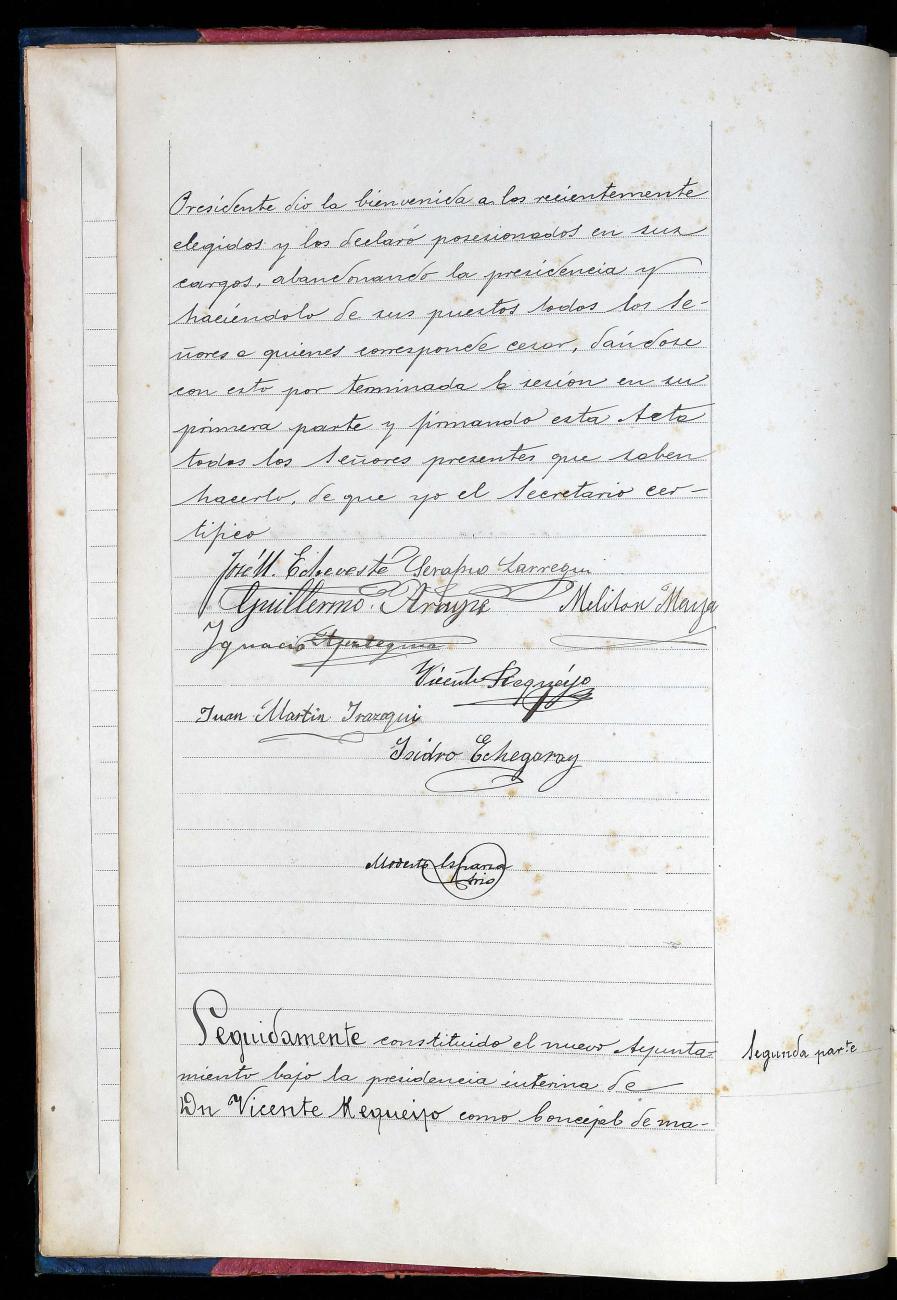 Presidente dio la bienvenida a los recientemente
elegidos y los declaró posesionados en sus
cargos, abandonando la presidencia y
haciéndolo de sus puestos todos los Se-
ñores a quienes corresponde cesar, dándose
con esto por terminada la sesión en su
primera parte y firmando esta Acta
todos los Señores presentes que saben
hacerlo, de que yo el Secretario cer-
tifico
José M. Echeveste Serapio Larregui
Guillermo Araya Meliton Maya
Ignacio Apezteguia
Vicente Requeijo
Juan Martin Irazoqui
Isidro Echegaray
Modesto Esparza
Srio
Seguidamente constituido el nuevo Ayunta-
miento bajo la presidencia interina de
Dn Vicente Requeijo como Concejal de ma-
Segunda parte